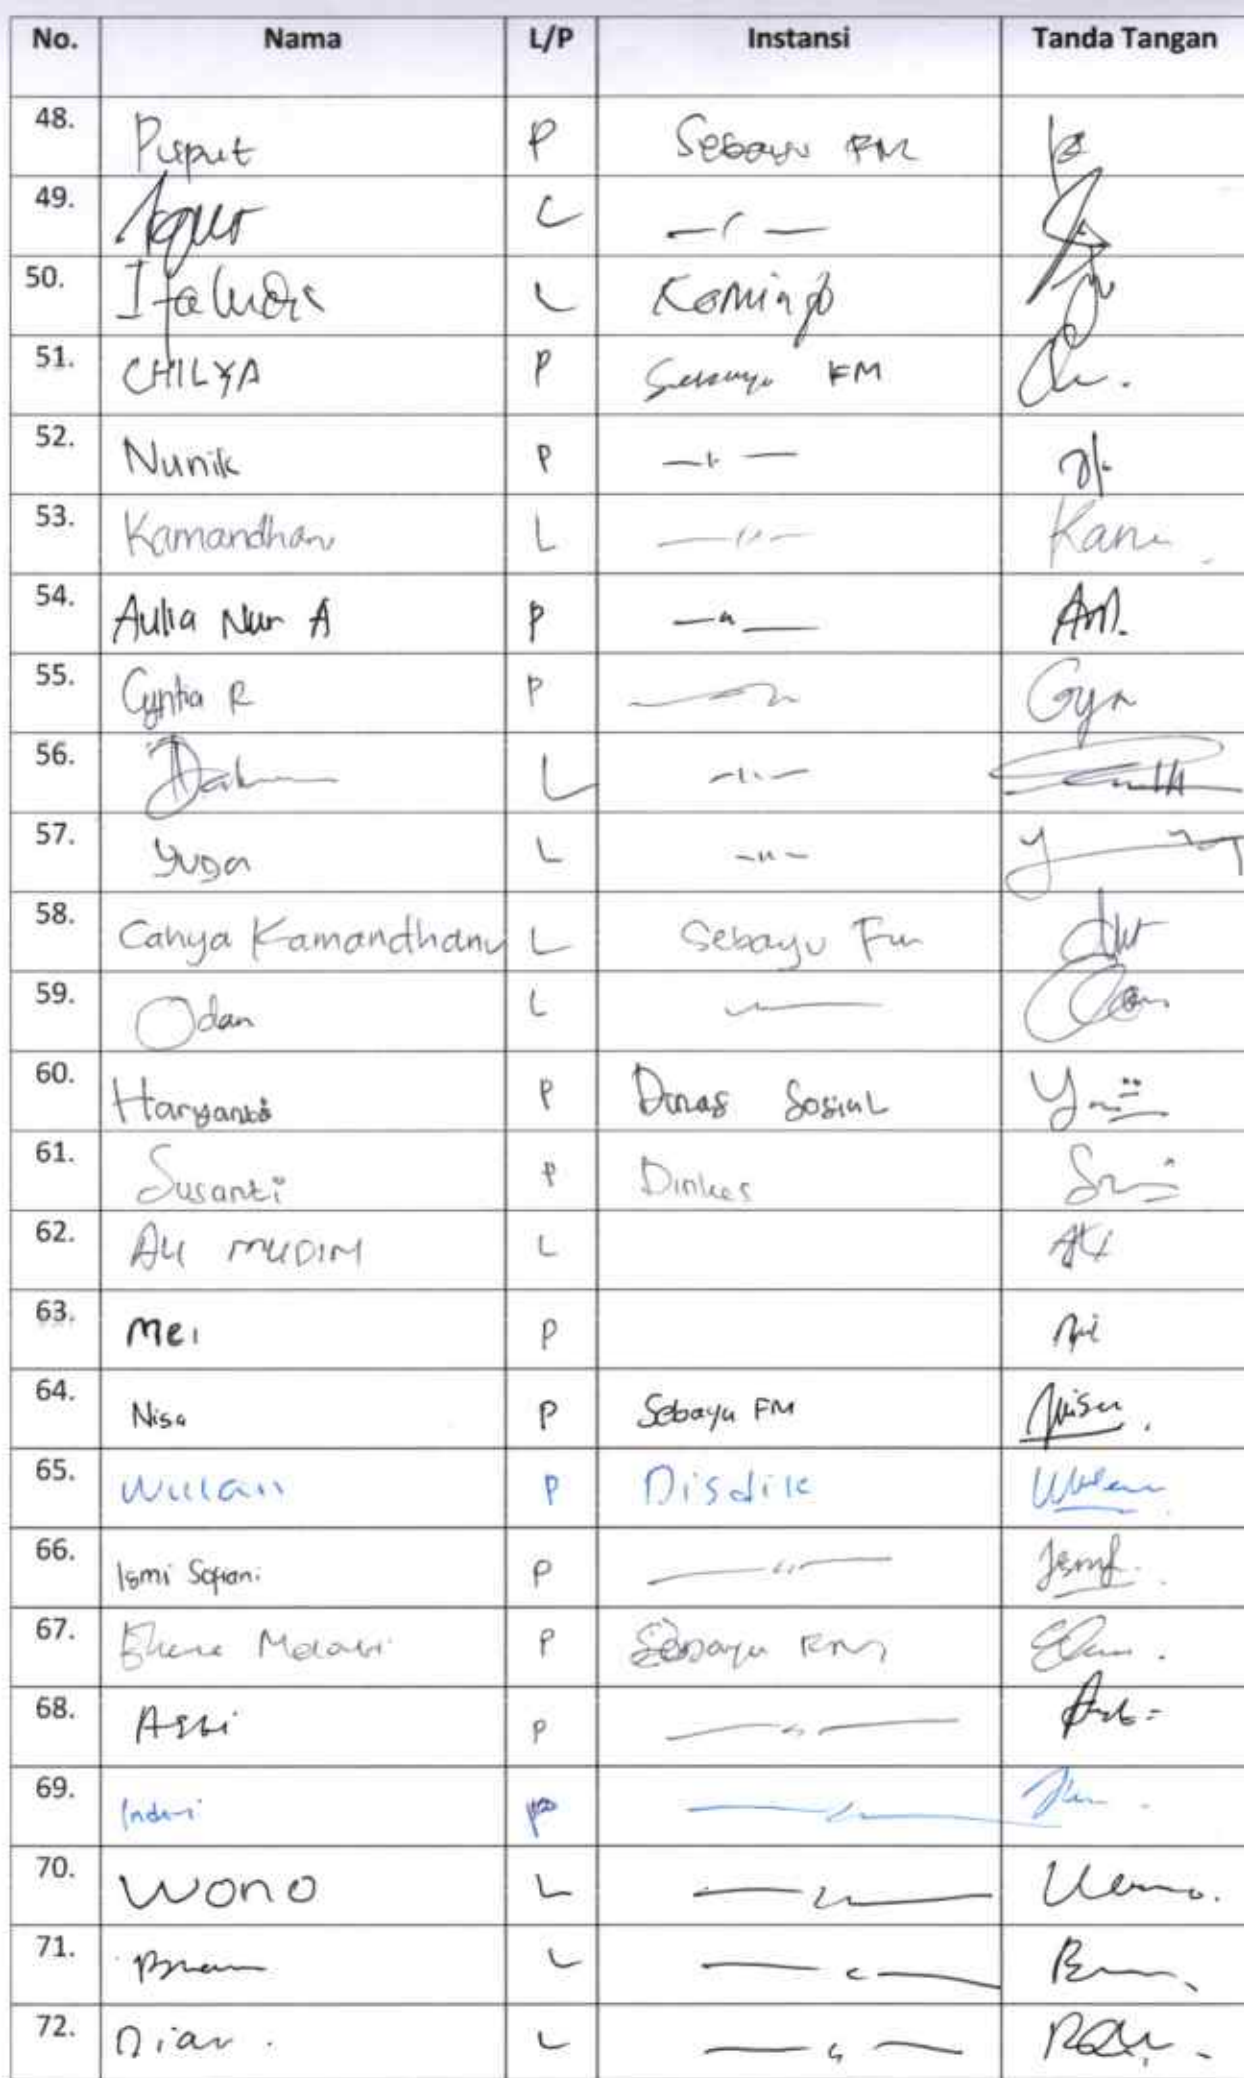 No. Nama L/P Instansi Tanda Tangan
48. Puput P Sebayu FM
49. L —〃—
50. L Kominfo
51. CHILYA P Sebayu FM
52. Nunik P —〃—
53. Kamandhanu L —〃— Kanu
54. Aulia Nur A P —〃—
55. Cyntia R P —〃—
56. L —〃—
57. Yuga L —〃—
58. Cahya Kamandhanu L Sebayu Fm
59. Odan L
60. Haryanto P Dinas Sosial
61. Susanti P Dinkes
62. ALI MUDIM L
63. Mei P
64. Nisa P Sebayu FM Nisa
65. Wulan P Disdik Wulan
66. Ismi Sofiani P —〃—
67. P Sebayu FM
68. Asti P —〃—
69. Indri P —〃—
70. Wono L —〃—
71. Bram L —〃—
72. Dian. L —〃—